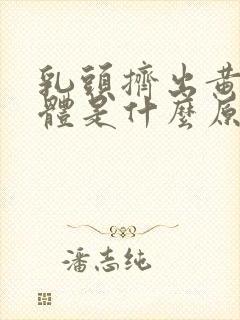 乳頭擠出黃
體是什麼原
潘志純